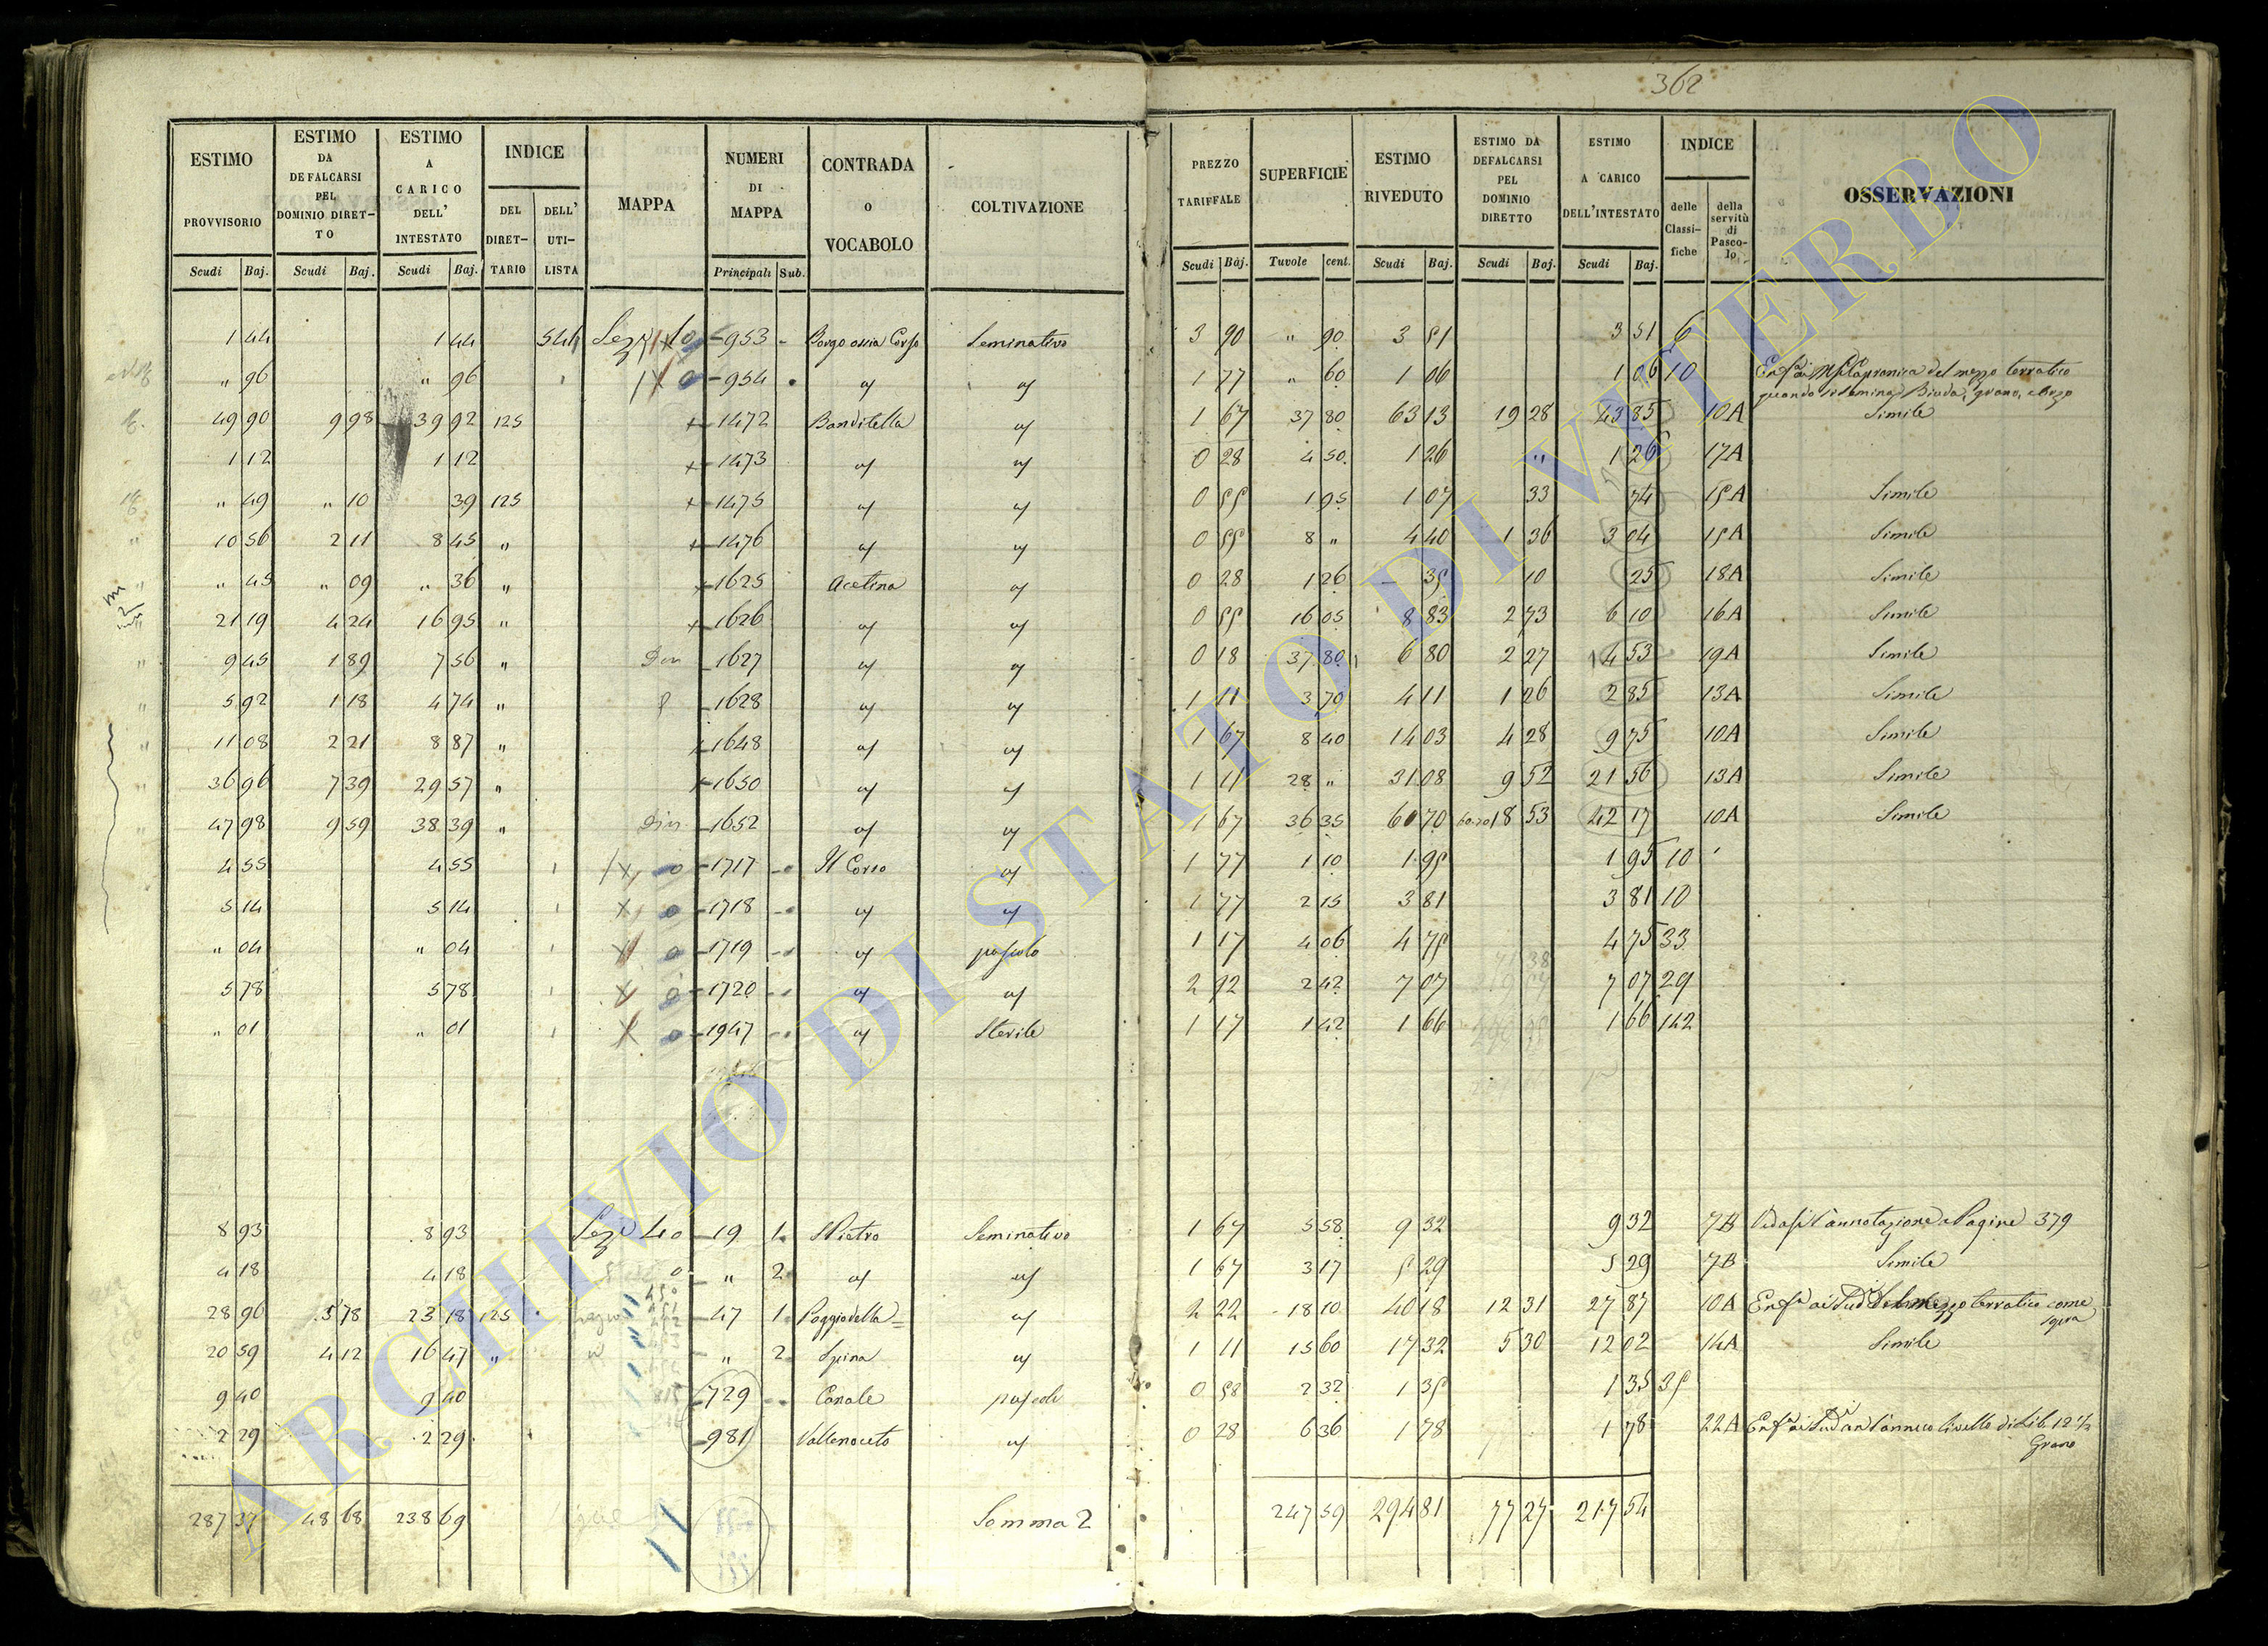 362
ESTIMO PROVVISORIO | ESTIMO DA DEFALCARSI PEL DOMINIO DIRETTO | ESTIMO A CARICO DELL' INTESTATO | INDICE DEL DIRETTARIO | DELL' UTILISTA | MAPPA | NUMERI DI MAPPA | CONTRADA O VOCABOLO | COLTIVAZIONE
PREZZO TARIFFALE | SUPERFICIE | ESTIMO RIVEDUTO | ESTIMO DA DEFALCARSI PEL DOMINIO DIRETTO | ESTIMO A CARICO DELL'INTESTATO | INDICE delle Classifiche | della servitù di Pascolo | OSSERVAZIONI
Scudi Baj. | Scudi Baj. | Scudi Baj. | Principali Sub.
Scudi Baj. | Tavole cent. | Scudi Baj. | Scudi Baj. | Scudi Baj.
1 44 | 1 44 | 544 | 953 | Borgo ossia Corso | Seminativo | 3 90 | " 90 | 3 51 | 3 51 | 6
" 96 | " 96 | 954 | 1 77 | " 60 | 1 06 | 1 06 | 10 | del mezzo terratico
quando si semina Biada, grano, e
49 90 | 9 98 | 39 92 | 125 | 1472 | Banditella | 1 67 | 37 80 | 63 13 | 19 28 | 43 85 | 10A | Simile
1 12 | 1 12 | 1473 | 0 28 | 4 50 | 1 26 | " | 1 26 | 17A
" 49 | " 10 | 39 | 125 | 1475 | 0 55 | 1 95 | 1 07 | 33 | 74 | 15A | Simile
10 56 | 2 11 | 8 45 | " | 1476 | 0 55 | 8 " | 4 40 | 1 36 | 3 04 | 15A | Simile
" 45 | " 09 | " 36 | " | 1625 | Acetina | 0 28 | 1 26 | 35 | 10 | 25 | 18A | Simile
21 19 | 4 24 | 16 95 | " | 1626 | 0 55 | 16 05 | 8 83 | 2 73 | 6 10 | 16A | Simile
9 45 | 1 89 | 7 56 | " | 1627 | 0 18 | 37 80 | 6 80 | 2 27 | 4 53 | 19A | Simile
5 92 | 1 18 | 4 74 | " | 1628 | 1 11 | 3 70 | 4 11 | 1 26 | 2 85 | 13A | Simile
11 08 | 2 21 | 8 87 | " | 1648 | 1 67 | 8 40 | 14 03 | 4 28 | 9 75 | 10A | Simile
36 96 | 7 39 | 29 57 | " | 1650 | 1 11 | 28 " | 31 08 | 9 52 | 21 56 | 13A | Simile
47 98 | 9 59 | 38 39 | " | 1652 | 1 67 | 36 35 | 60 70 | 18 53 | 42 17 | 10A | Simile
4 55 | 4 55 | 1717 | Il Corso | 1 77 | 1 10 | 1 95 | 1 95 | 10
5 14 | 5 14 | 1718 | 1 77 | 2 15 | 3 81 | 3 81 | 10
" 04 | " 04 | 1719 | pascolo | 1 17 | 4 06 | 4 75 | 4 75 | 33
5 78 | 5 78 | 1720 | 2 92 | 2 42 | 7 07 | 7 07 | 29
" 01 | " 01 | 1947 | Sterile | 1 17 | 1 42 | 1 66 | 1 66 | 142
8 93 | 8 93 | 19 | 1 | S Pietro | Seminativo | 1 67 | 5 58 | 9 32 | 9 32 | 7B | Vedasi l'annotazione a Pagine 379
4 18 | 4 18 | " | 2 | 1 67 | 3 17 | 5 29 | 5 29 | 7B | Simile
28 96 | 5 78 | 23 18 | 125 | 47 | 1 | Poggio della | 2 22 | 18 10 | 40 18 | 12 31 | 27 87 | 10A | mezzo terratico come
sopra
20 59 | 4 12 | 16 47 | " | " | 2 | Spina | 1 11 | 15 60 | 17 32 | 5 30 | 12 02 | 14A | Simile
9 40 | 9 40 | 729 | Canale | pascolo | 0 58 | 2 32 | 1 35 | 1 35 | 35
2 29 | 2 29 | 981 | Vallenoceto | 0 28 | 6 36 | 1 78 | 1 78 | 22A | livello di Lib. 12 1/2
Grano
287 37 | 48 68 | 238 69 | Somma 2 | 247 59 | 294 81 | 77 27 | 217 54
ARCHIVIO DI STATO DI VITERBO